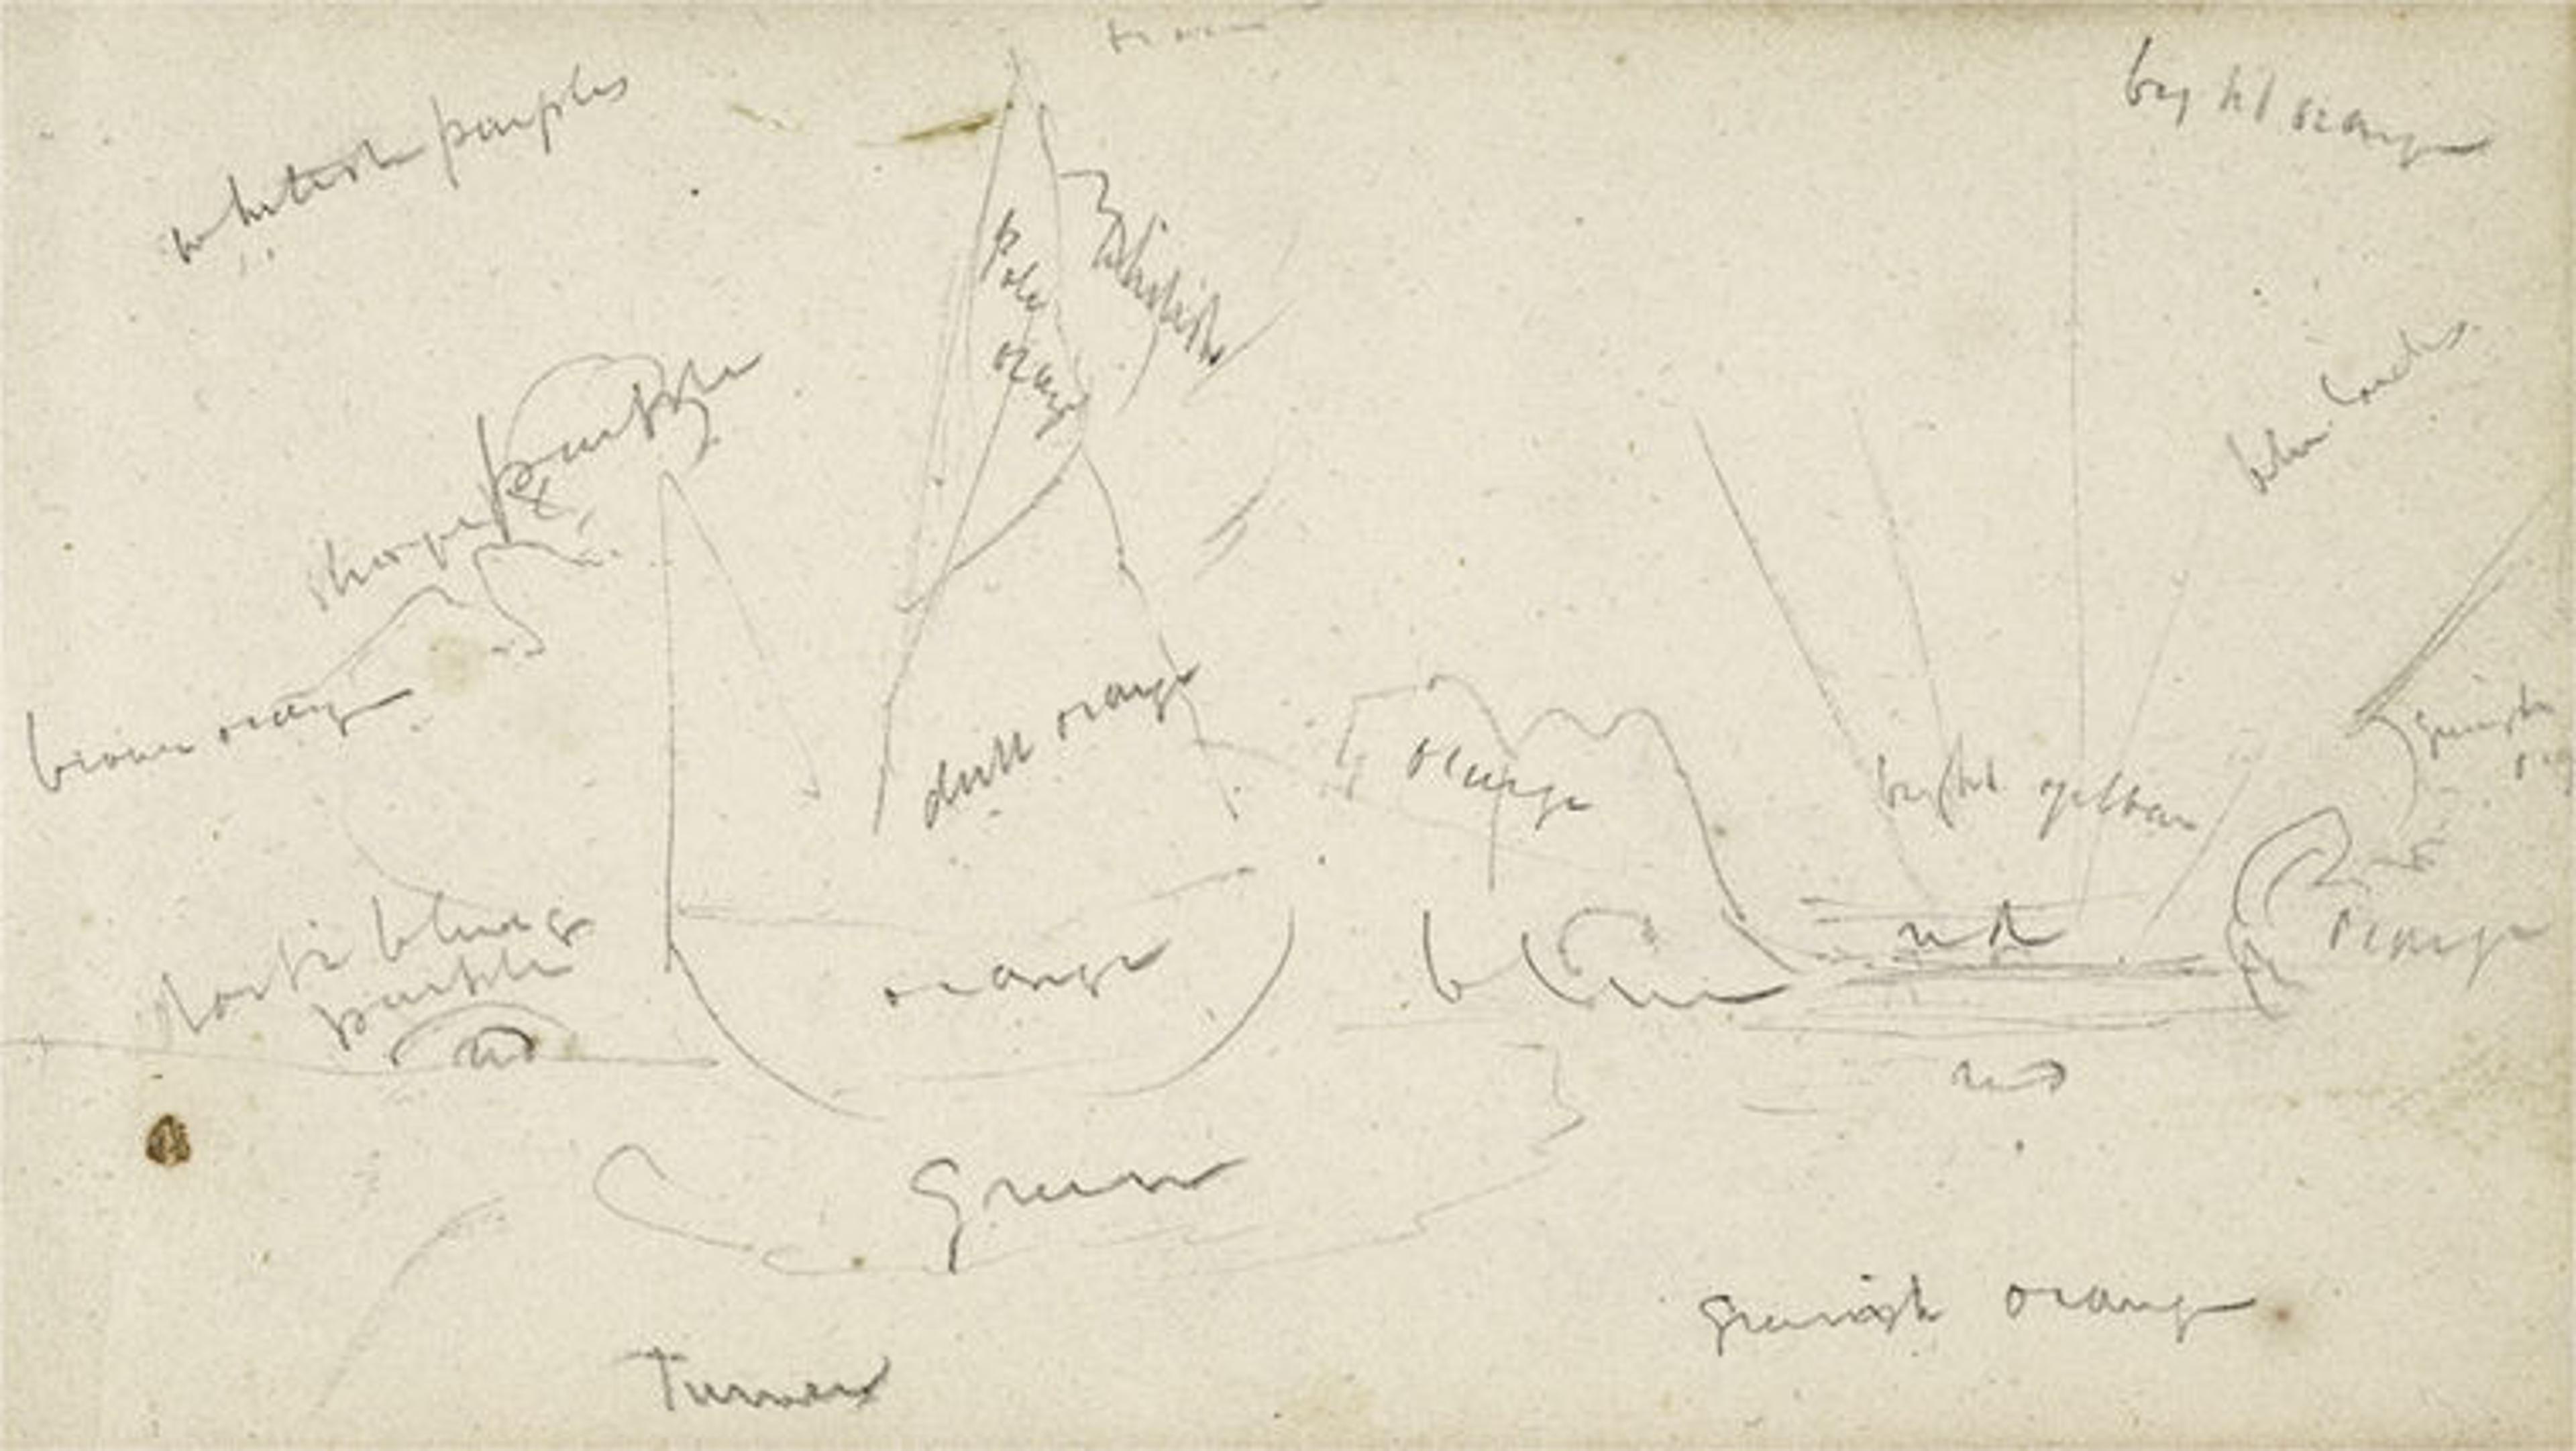 whitish purples
bright orange
pale
orange
Whitish
sharper purple
&
blue
brown orange
dull orange
orange
bright yellow
greenish
dark blue &
purple
red
orange
blue
red
orange
red
Green
greenish orange
Turner